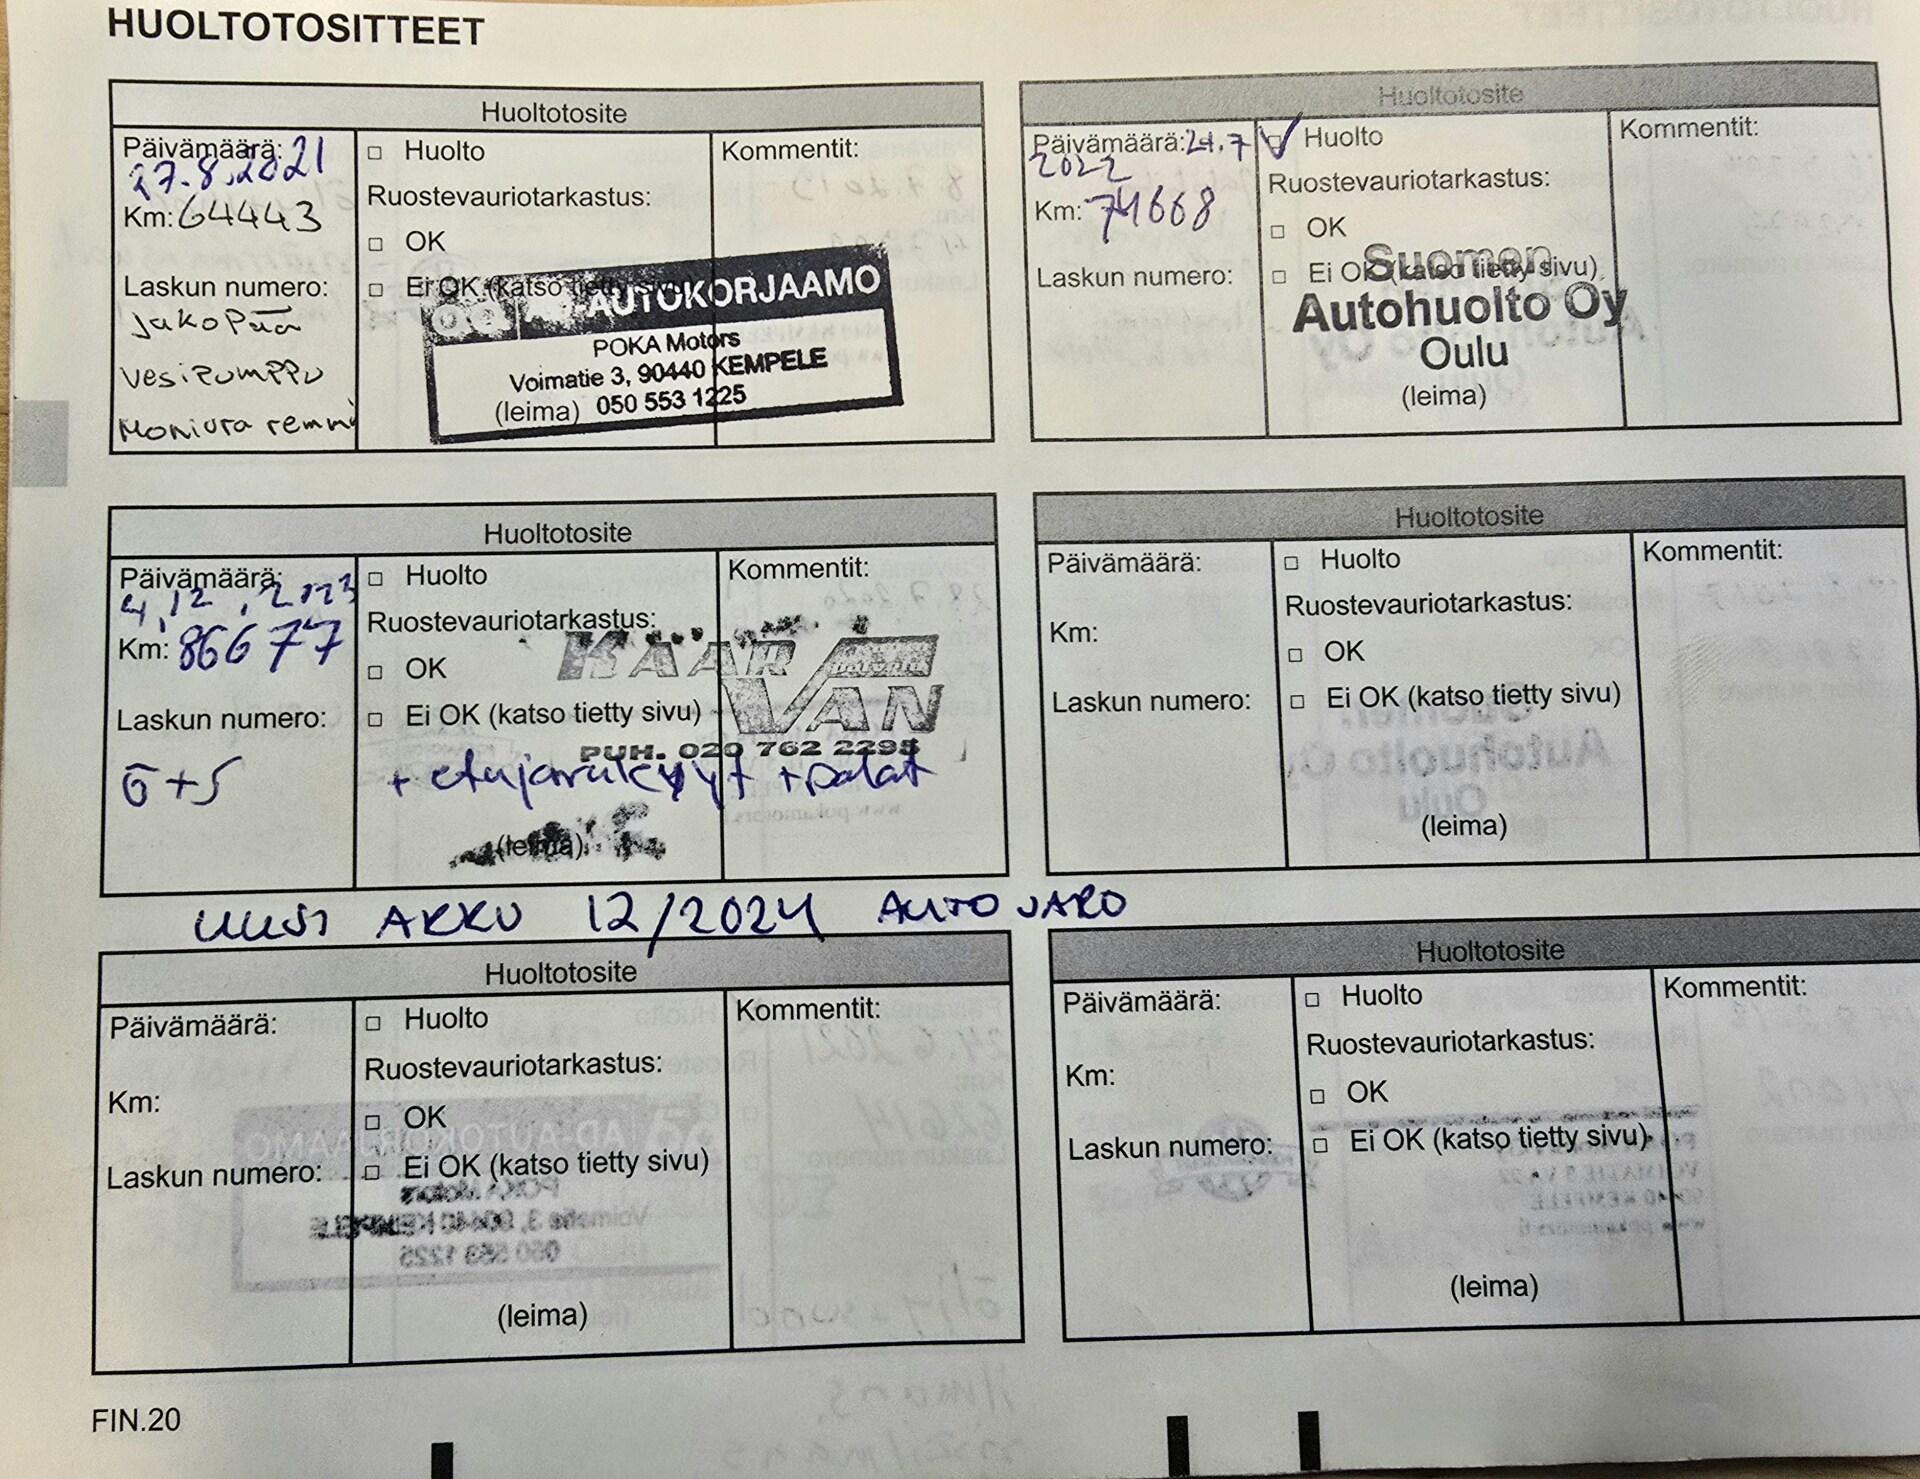 HUOLTOTOSITTEET
Huoltotosite
Päivämäärä:
27.8.2021
Km: 64443
Laskun numero:
Jakopää
vesipumppu
Moniura
□ Huolto
Ruostevauriotarkastus:
□ OK
□ Ei OK (katso tietty sivu)
AD-AUTOKORJAAMO
POKA Motors
Voimatie 3, 90440 KEMPELE
(leima) 050 553 1225
Kommentit:
Huoltotosite
Päivämäärä: 24.7
2022
Km: 74668
Laskun numero:
□ Huolto
Ruostevauriotarkastus:
□ OK
□ Ei OK (katso tietty sivu)
Suomen
Autohuolto Oy
Oulu
(leima)
Kommentit:
Huoltotosite
Päivämäärä:
4.12.2023
Km: 86677
Laskun numero:
Ö+S
□ Huolto
Ruostevauriotarkastus:
□ OK
□ Ei OK (katso tietty sivu)
Kommentit:
KÄÄR
VAN
PUH. 020 762 2295
+ etujarrulevyyt + palat
(leima)
Huoltotosite
Päivämäärä:
Km:
Laskun numero:
□ Huolto
Ruostevauriotarkastus:
□ OK
□ Ei OK (katso tietty sivu)
(leima)
Kommentit:
UUSI AKKU 12/2024 AUTOJARO
Huoltotosite
Päivämäärä:
Km:
Laskun numero:
□ Huolto
Ruostevauriotarkastus:
□ OK
□ Ei OK (katso tietty sivu)
(leima)
Kommentit:
Huoltotosite
Päivämäärä:
Km:
Laskun numero:
□ Huolto
Ruostevauriotarkastus:
□ OK
□ Ei OK (katso tietty sivu)
(leima)
Kommentit:
FIN.20